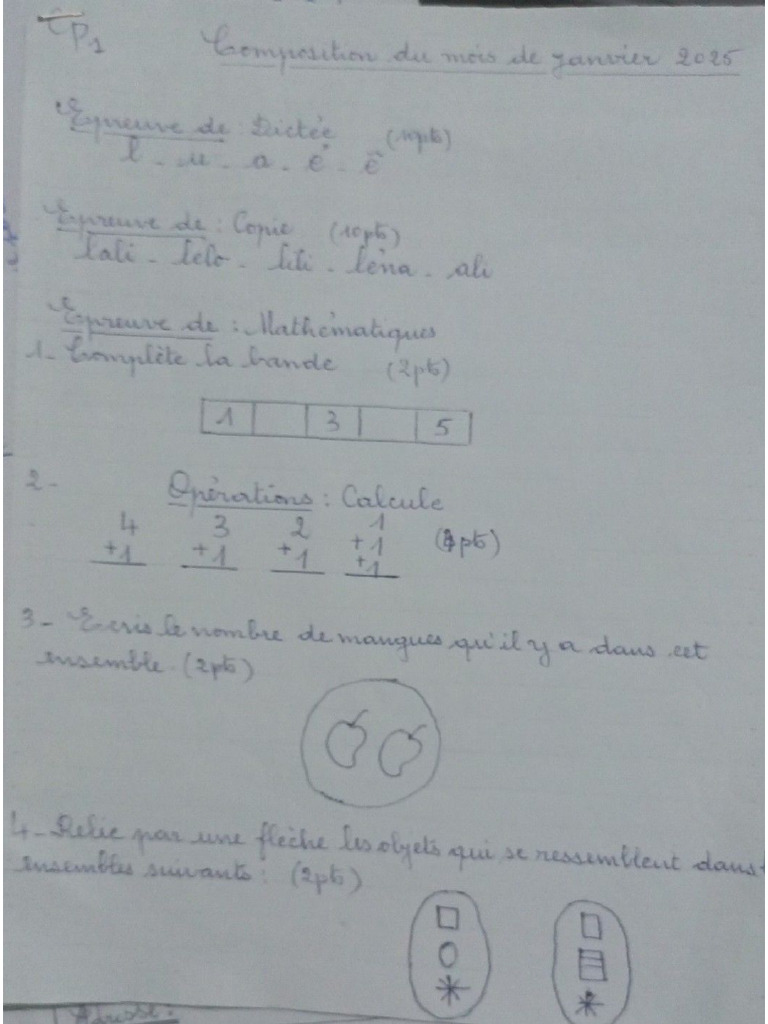 CP1 Composition du mois de janvier 2025
Epreuve de : Dictée (10pts)
l - u - a - é - ê
Epreuve de : Copie (10pts)
lali - lelo - lili - léna - ali
Epreuve de : Mathématiques
1- Complète la bande (2pts)
1 3 5
2- Opérations : Calcule
4 3 2 1
+1 +1 +1 +1 (4pts)
+1
3- Ecris le nombre de mangues qu'il y a dans cet
ensemble. (2pts)
4- Relie par une flèche les objets qui se ressemblent dans
ensembles suivants : (2pts)
Adresse :